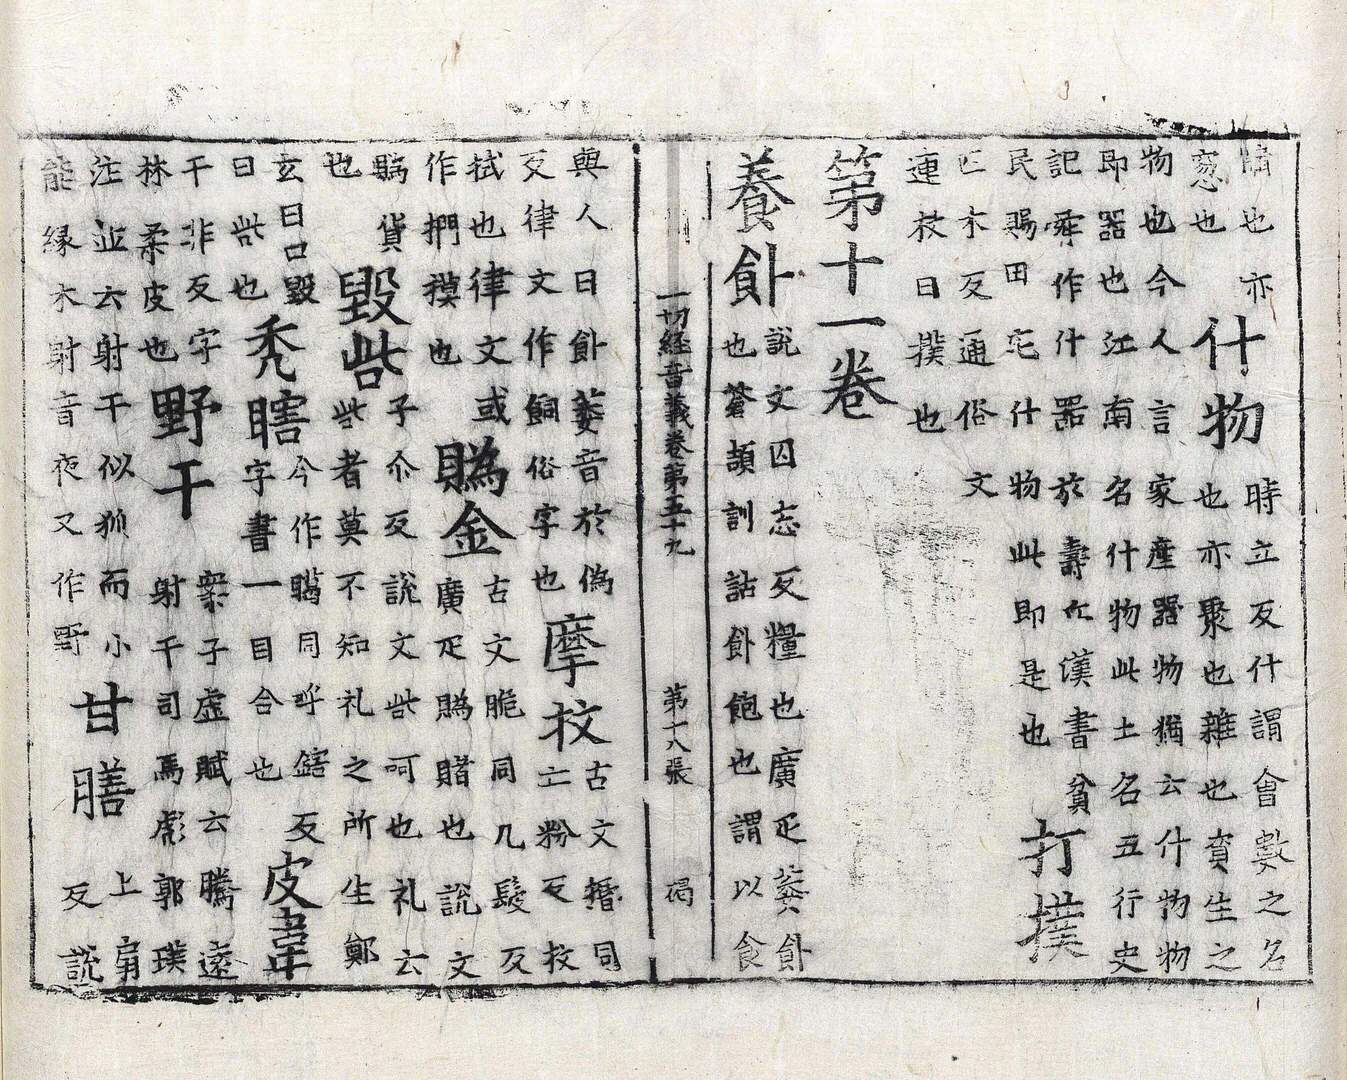 也亦
窓也
什物
時立反什謂會數之名
也亦聚也雜也資生之
物也今人言家產器物猶云什物物
即器也江南名什物此土名五行史
記舜作什器於壽丘漢書貧
民賜田宅什物此即是也
打撲
匹木反通俗文
連杖曰撲也
第十一卷
養飤
說文囚志反糧也廣疋萎飤
也蒼頡訓詁飤飽也謂以食
一切經音義卷第五十九 第十八張 碣
與人曰飤萎音於偽
反律文作飼俗字也
摩抆
古文㨉同
亡粉反抆
拭也律文或
作捫摸也
䞈金
古文脆同几髲反
廣疋䞈賭也說文
䞈貨
也
毀呰
子尒反說文呰呵也礼云
呰者莫不知礼之所生鄭
玄曰口毀
曰呰也
禿瞎
今作䁔同呼鎋反
字書一目合也
皮韋
干非反字
林柔皮也
野干
案子虛賦云騰遠
射干司馬彪郭璞
注並云射干似狐而小
能緣木射音夜又作野
甘膳
上扇
反說